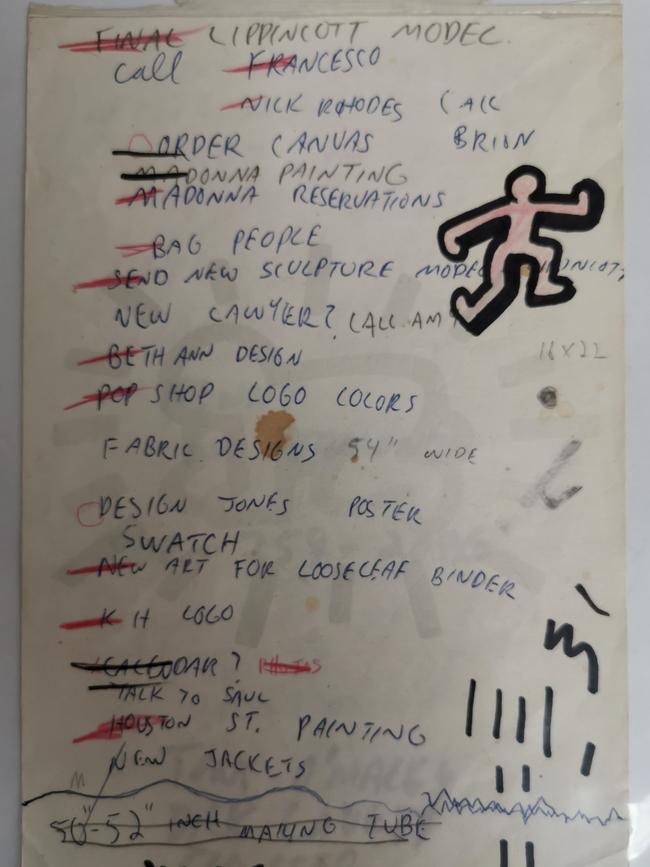 FINAL LIPPINCOTT MODEL.
Call FRANCESCO
NICK RHODES CALL
ORDER CANVAS BRION
MADONNA PAINTING
MADONNA RESERVATIONS
BAG PEOPLE
SEND NEW SCULPTURE MODEL
NEW LAWYER? CALL AMY
BETH ANN DESIGN
16 X 22
POP SHOP LOGO COLORS
FABRIC DESIGNS 54" WIDE
DESIGN JONES POSTER
SWATCH
NEW ART FOR LOOSELEAF BINDER
K H LOGO
CALENDAR?
TALK TO SAUL
HOUSTON ST. PAINTING
NEW JACKETS
50"-52" INCH MAILING TUBE